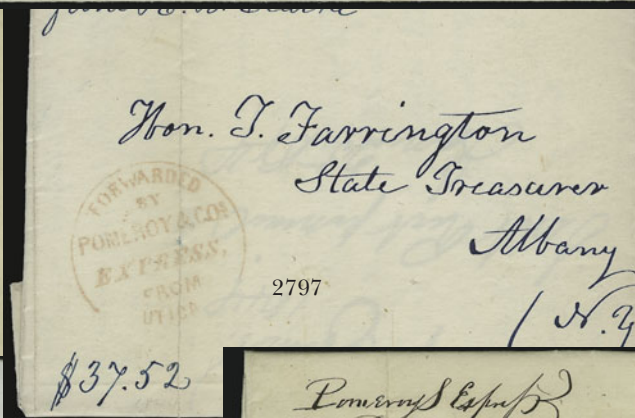 Hon. T. Farrington
State Treasurer
Albany
N.Y
FORWARDED
BY
POMEROY & COS
EXPRESS,
FROM
UTICA
2797
$37.52
Pomeroys Express